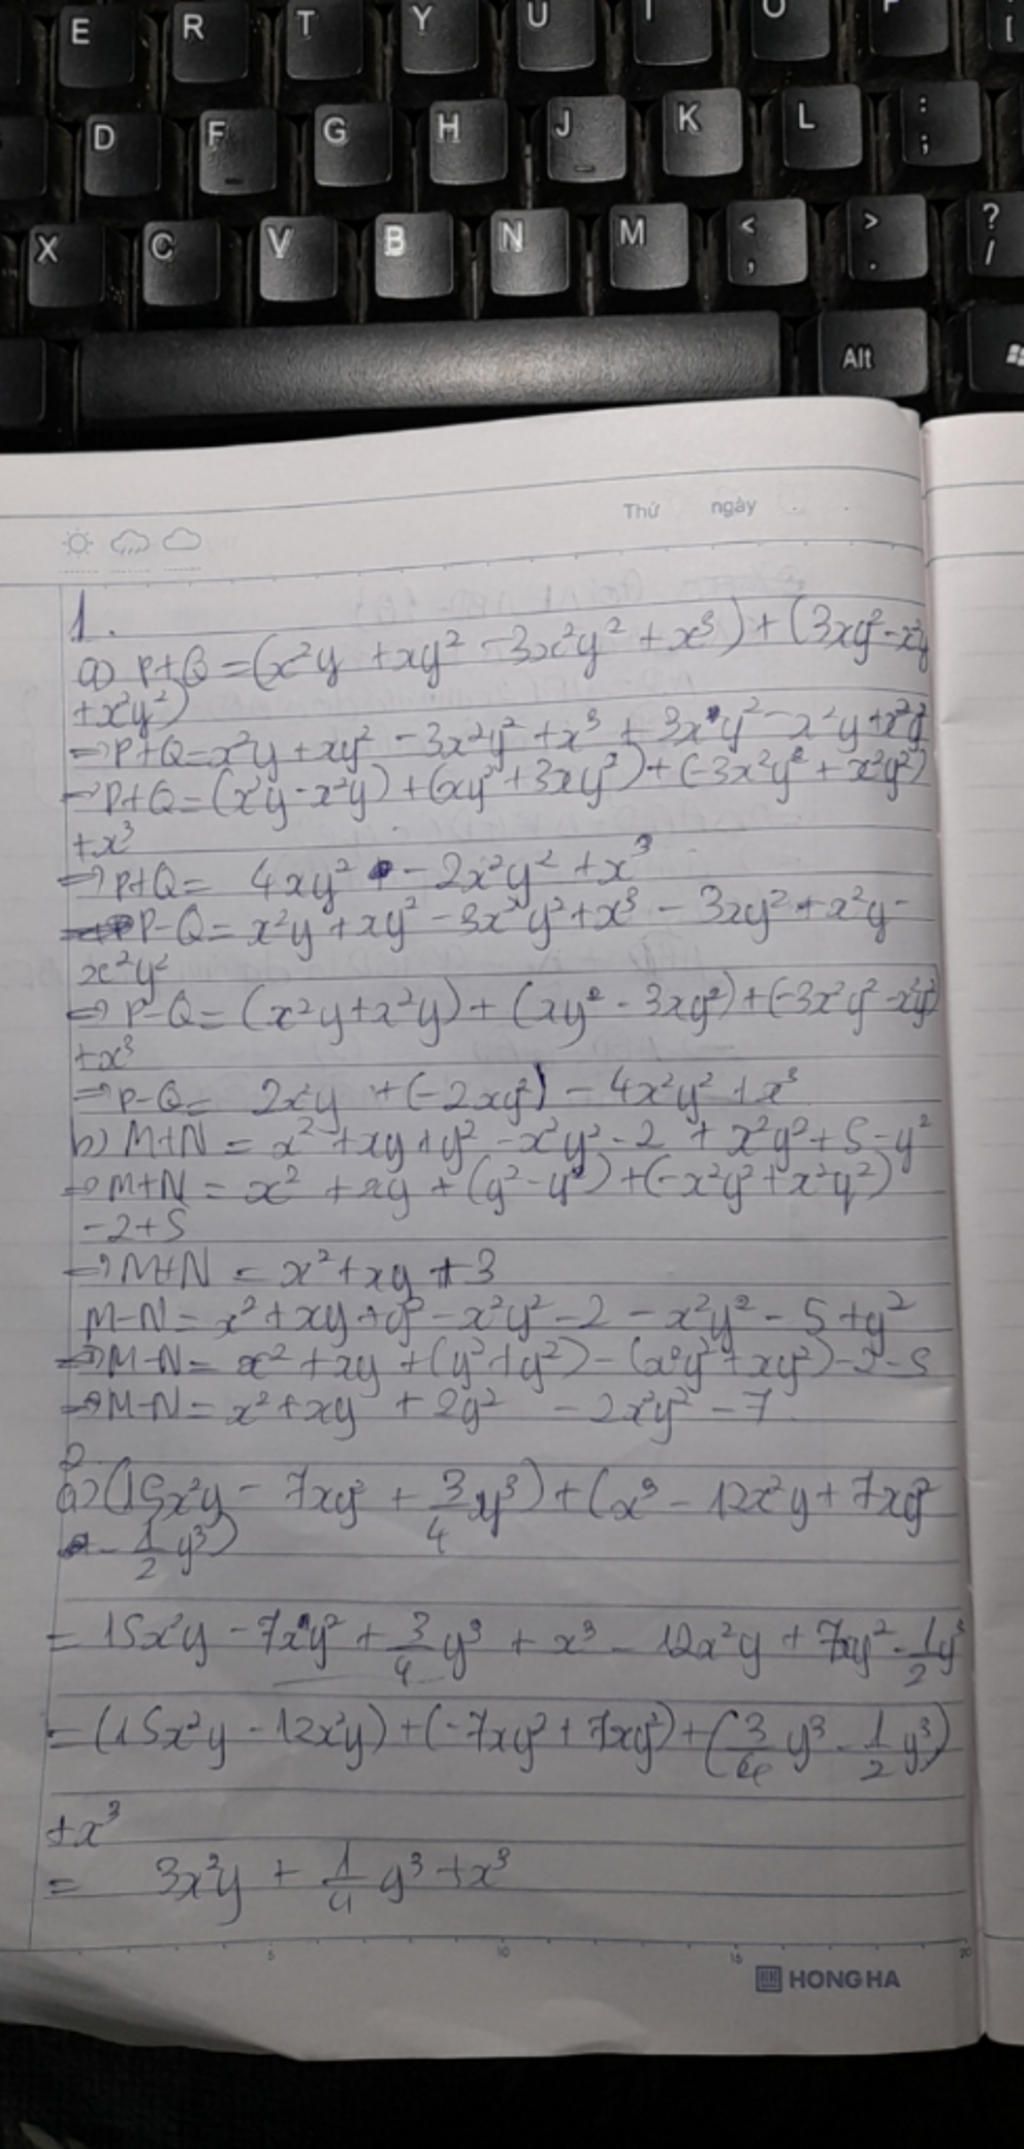 E R T Y U I O P [
D F G H J K L : ;
X C V B N M < , > . ? /
Alt
Thứ ngày
1.
a) P+Q = (x²y + xy² - 3x²y² + x³) + (3xy² - x²y
+x²y²)
⇒ P+Q = x²y + xy² - 3x²y² + x³ + 3xy² - x²y + x²y²
⇒ P+Q = (x²y - x²y) + (xy² + 3xy²) + (-3x²y² + x²y²)
+x³
⇒ P+Q = 4xy² - 2x²y² + x³
P-Q = x²y + xy² - 3x²y² + x³ - 3xy² + x²y -
x²y²
⇒ P-Q = (x²y + x²y) + (xy² - 3xy²) + (-3x²y² - x²y²)
+x³
⇒ P-Q = 2x²y + (-2xy²) - 4x²y² + x³
b) M+N = x² + xy + y² - x²y² - 2 + x²y² + 5 - y²
⇒ M+N = x² + xy + (y² - y²) + (-x²y² + x²y²)
-2+5
⇒ M+N = x² + xy + 3
M-N = x² + xy + y² - x²y² - 2 - x²y² - 5 + y²
⇒ M-N = x² + xy + (y² + y²) - (x²y² + xy²) - 2 - 5
⇒ M-N = x² + xy + 2y² - 2x²y² - 7
2
a) (15x²y - 7xy² + 3/4 y³) + (x³ - 12x²y + 7xy²
- 1/2 y³)
= 15x²y - 7xy² + 3/4 y³ + x³ - 12x²y + 7xy² - 1/2 y³
= (15x²y - 12x²y) + (-7xy² + 7xy²) + (3/4 y³ - 1/2 y³)
+x³
= 3x²y + 1/4 y³ + x³
5 10 15 20
HONG HA